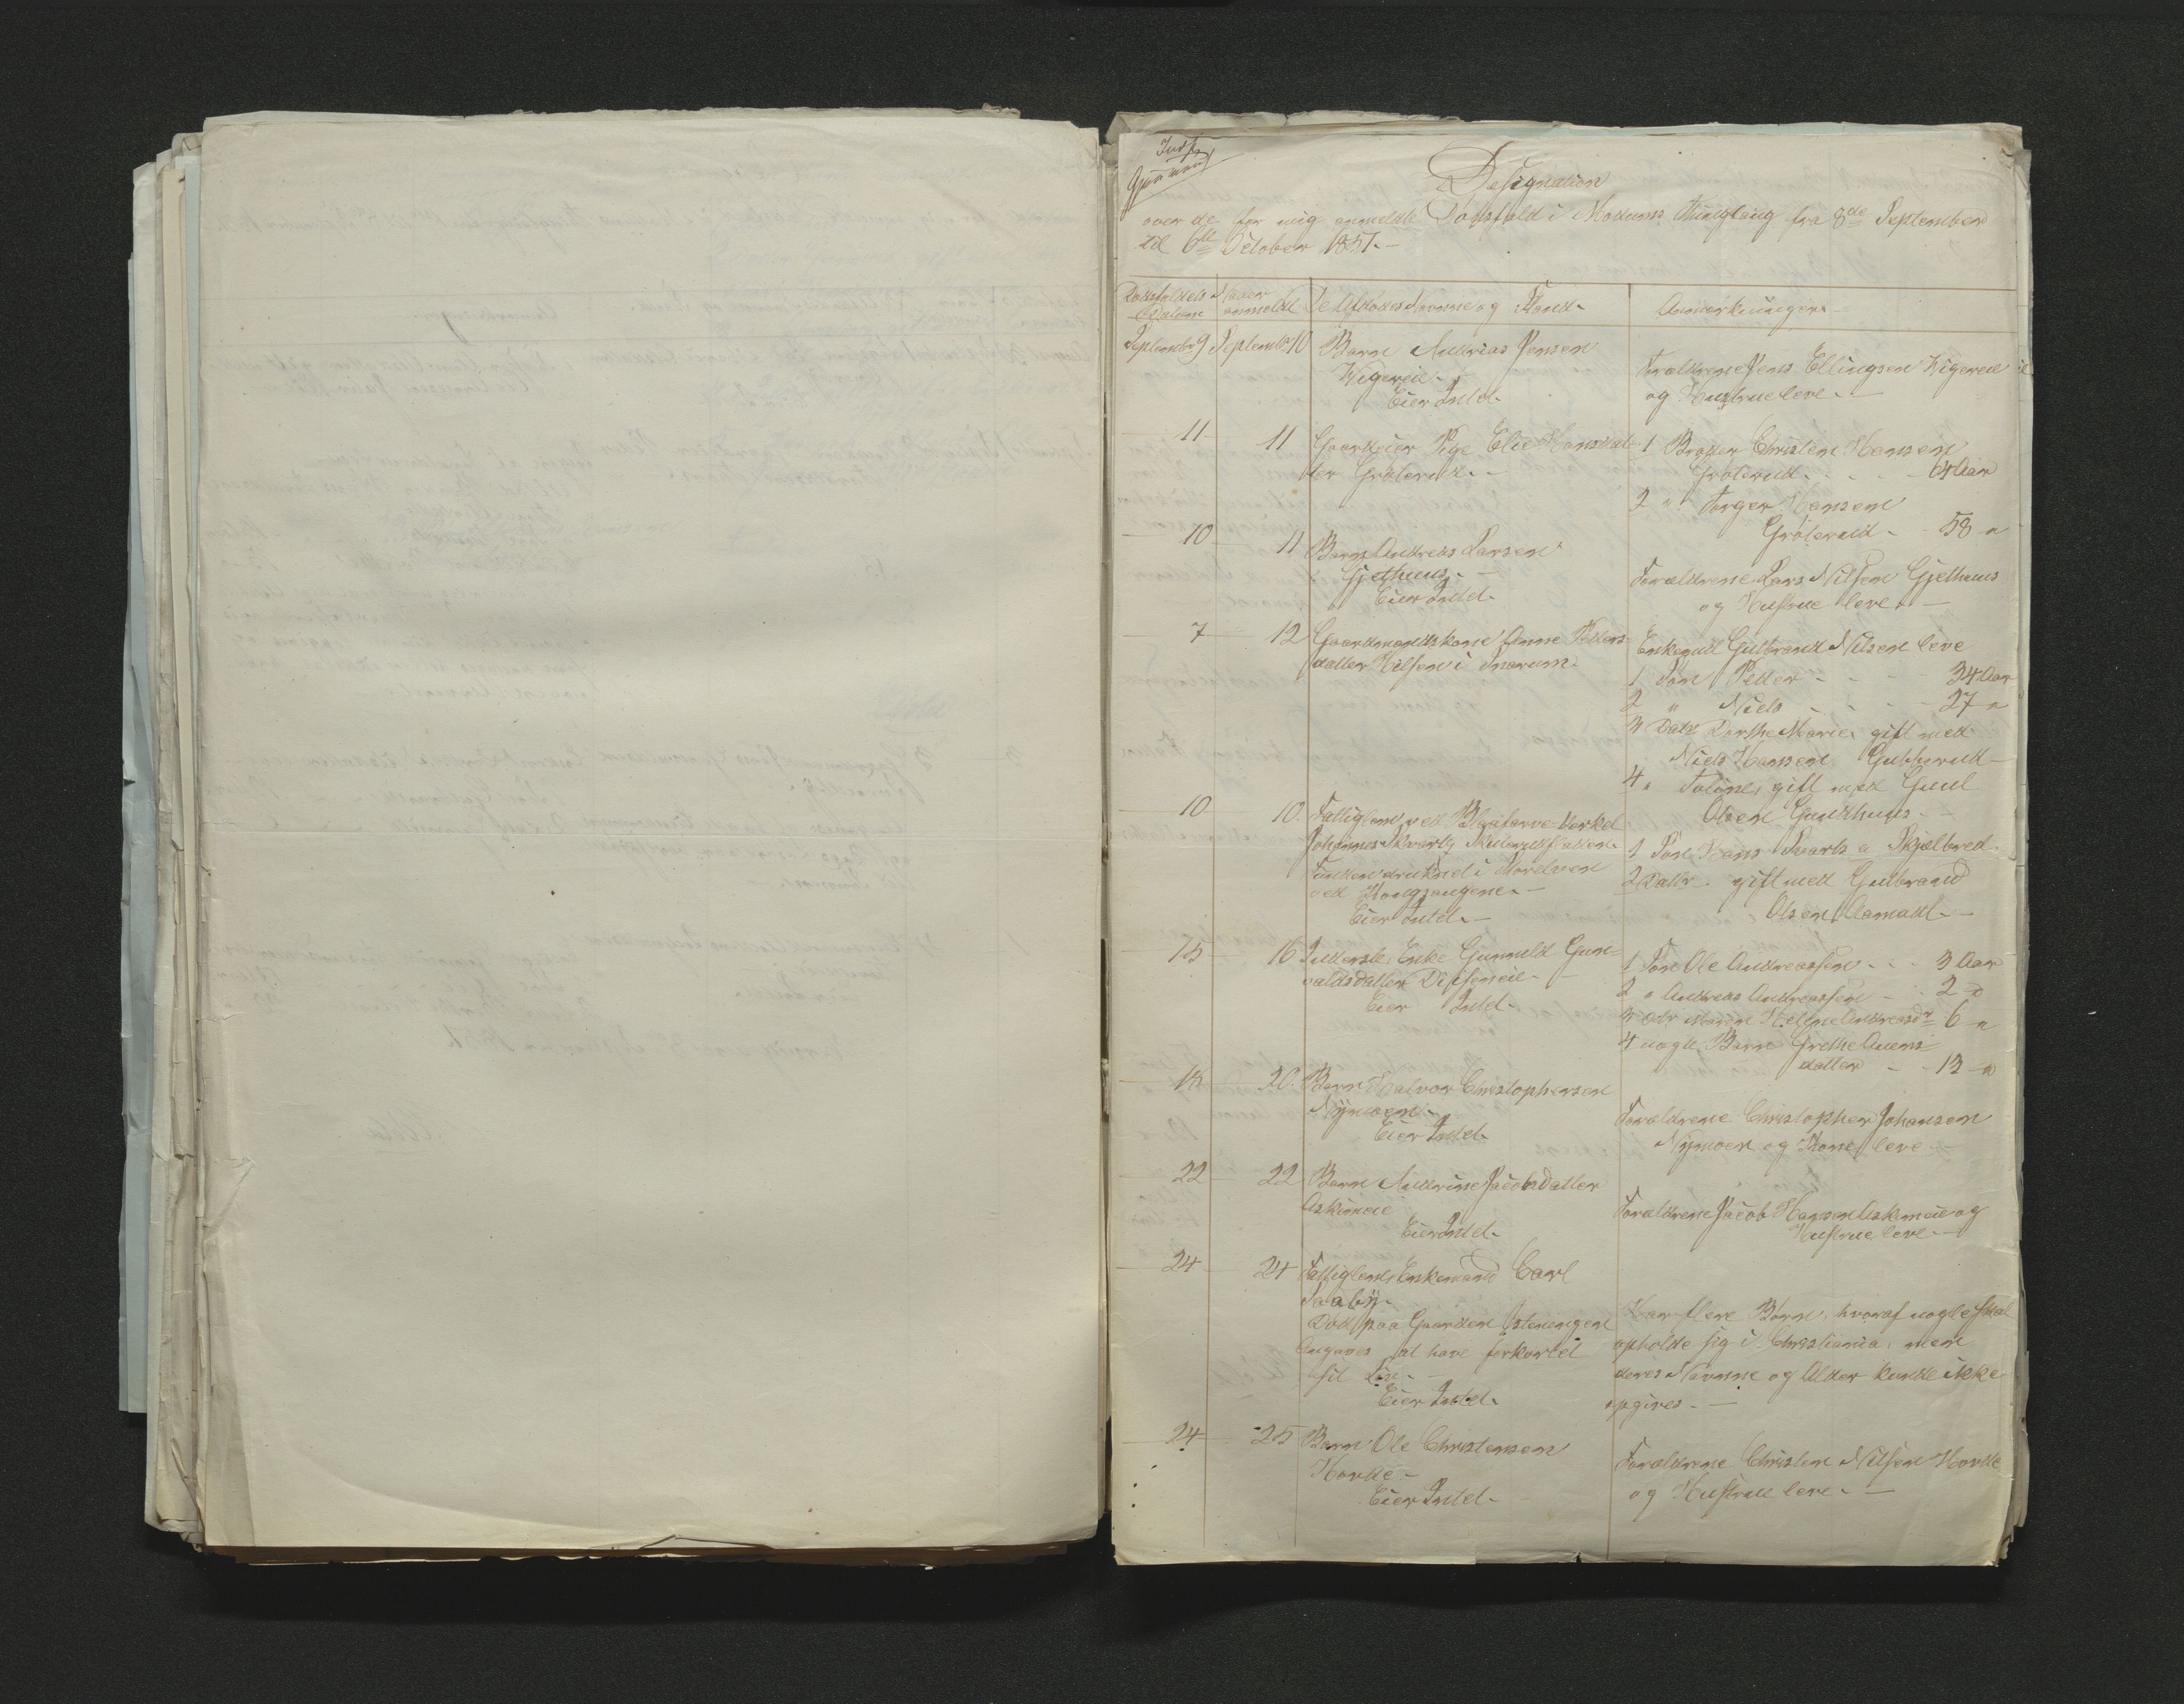 Designation
over de for mig anmeldte Dødsfald i Modums Thinglaug fra 8de September
til 6te October 1851.-
Dødsfaldets Datum
Naar anmeldt
De Afdødes Navne og Stand-
Anmærkninger-
September 9 September 10 Barn Andrias Jensen
Wigereie-
Eier Intet-
Forældrene Jens Ellingsen Wigereie
og Hustrue leve.-
11 11 Gaardeier Pige Elie Hansdat
ter Grøterud.-
1 Broder Christen Hansen
Grøterud. - - 64 Aar
2 " Torger Hansen
Grøterud - 58 "
10 11 Barn Andreas Larsen
Gjethuus.-
Eier Intet-
Forældrene Lars Nilsen Gjethuus
og Hustrue leve.-
7 12 Gaardmandskone Anne Peders
datter i Snarum-
Enkemd Gulbrand Nilsen leve
1 Søn Peder - - - 34 Aar
2 " Niels - - - 27 "
3 Datr Dorthe Marie, gift med
Niels Hansen Gubberud-
4 " gift med Guul
Olsen Gunhuus.-
10 10 Fattiglem ved Blaafarve Verket
Johannes
Funden druknet i Mordven
ved
Eier Intet.-
1 Søn Hans a Skjelbred.
2 Datr. gift med Gulbrand
Olsen Aamodt.-
15 16 Inderste Enke Gunnild Gun-
valdsdatter
Eier Intet-
1 Søn Ole Andreassen - - - 3 Aar
2 " Andreas Andreassen - - 2 "
3 Datr Maren Helene Andreasdr 6 "
4 uægte Barn Grethe
datter - - 13 "
18 20 Barn Halvor Christophersen
Nymoen-
Eier Intet-
Forældrene Christopher Johansen
Nymoen og Kone leve-
22 22 Barn Andrine Jacobsdatter
Askimeie
Eier Intet-
Forældrene Jacob Hansen Askimeie og
Hustrue leve-
24 24 Fattiglem, Enkemand Carl
Saaby-
Død paa Gaarden
Angaves at have forkortet
sit Liv-
Eier Intet-
Har flere Børn, hvoraf nogle skal
opholde sig i Christiania, men
deres Navnne og Alder kunde ikke
opgives.-
24 25 Barn Ole Christensen
Hovde-
Eier Intet-
Forældrene Christen Nilsen Hovde
og Hustrue leve.-